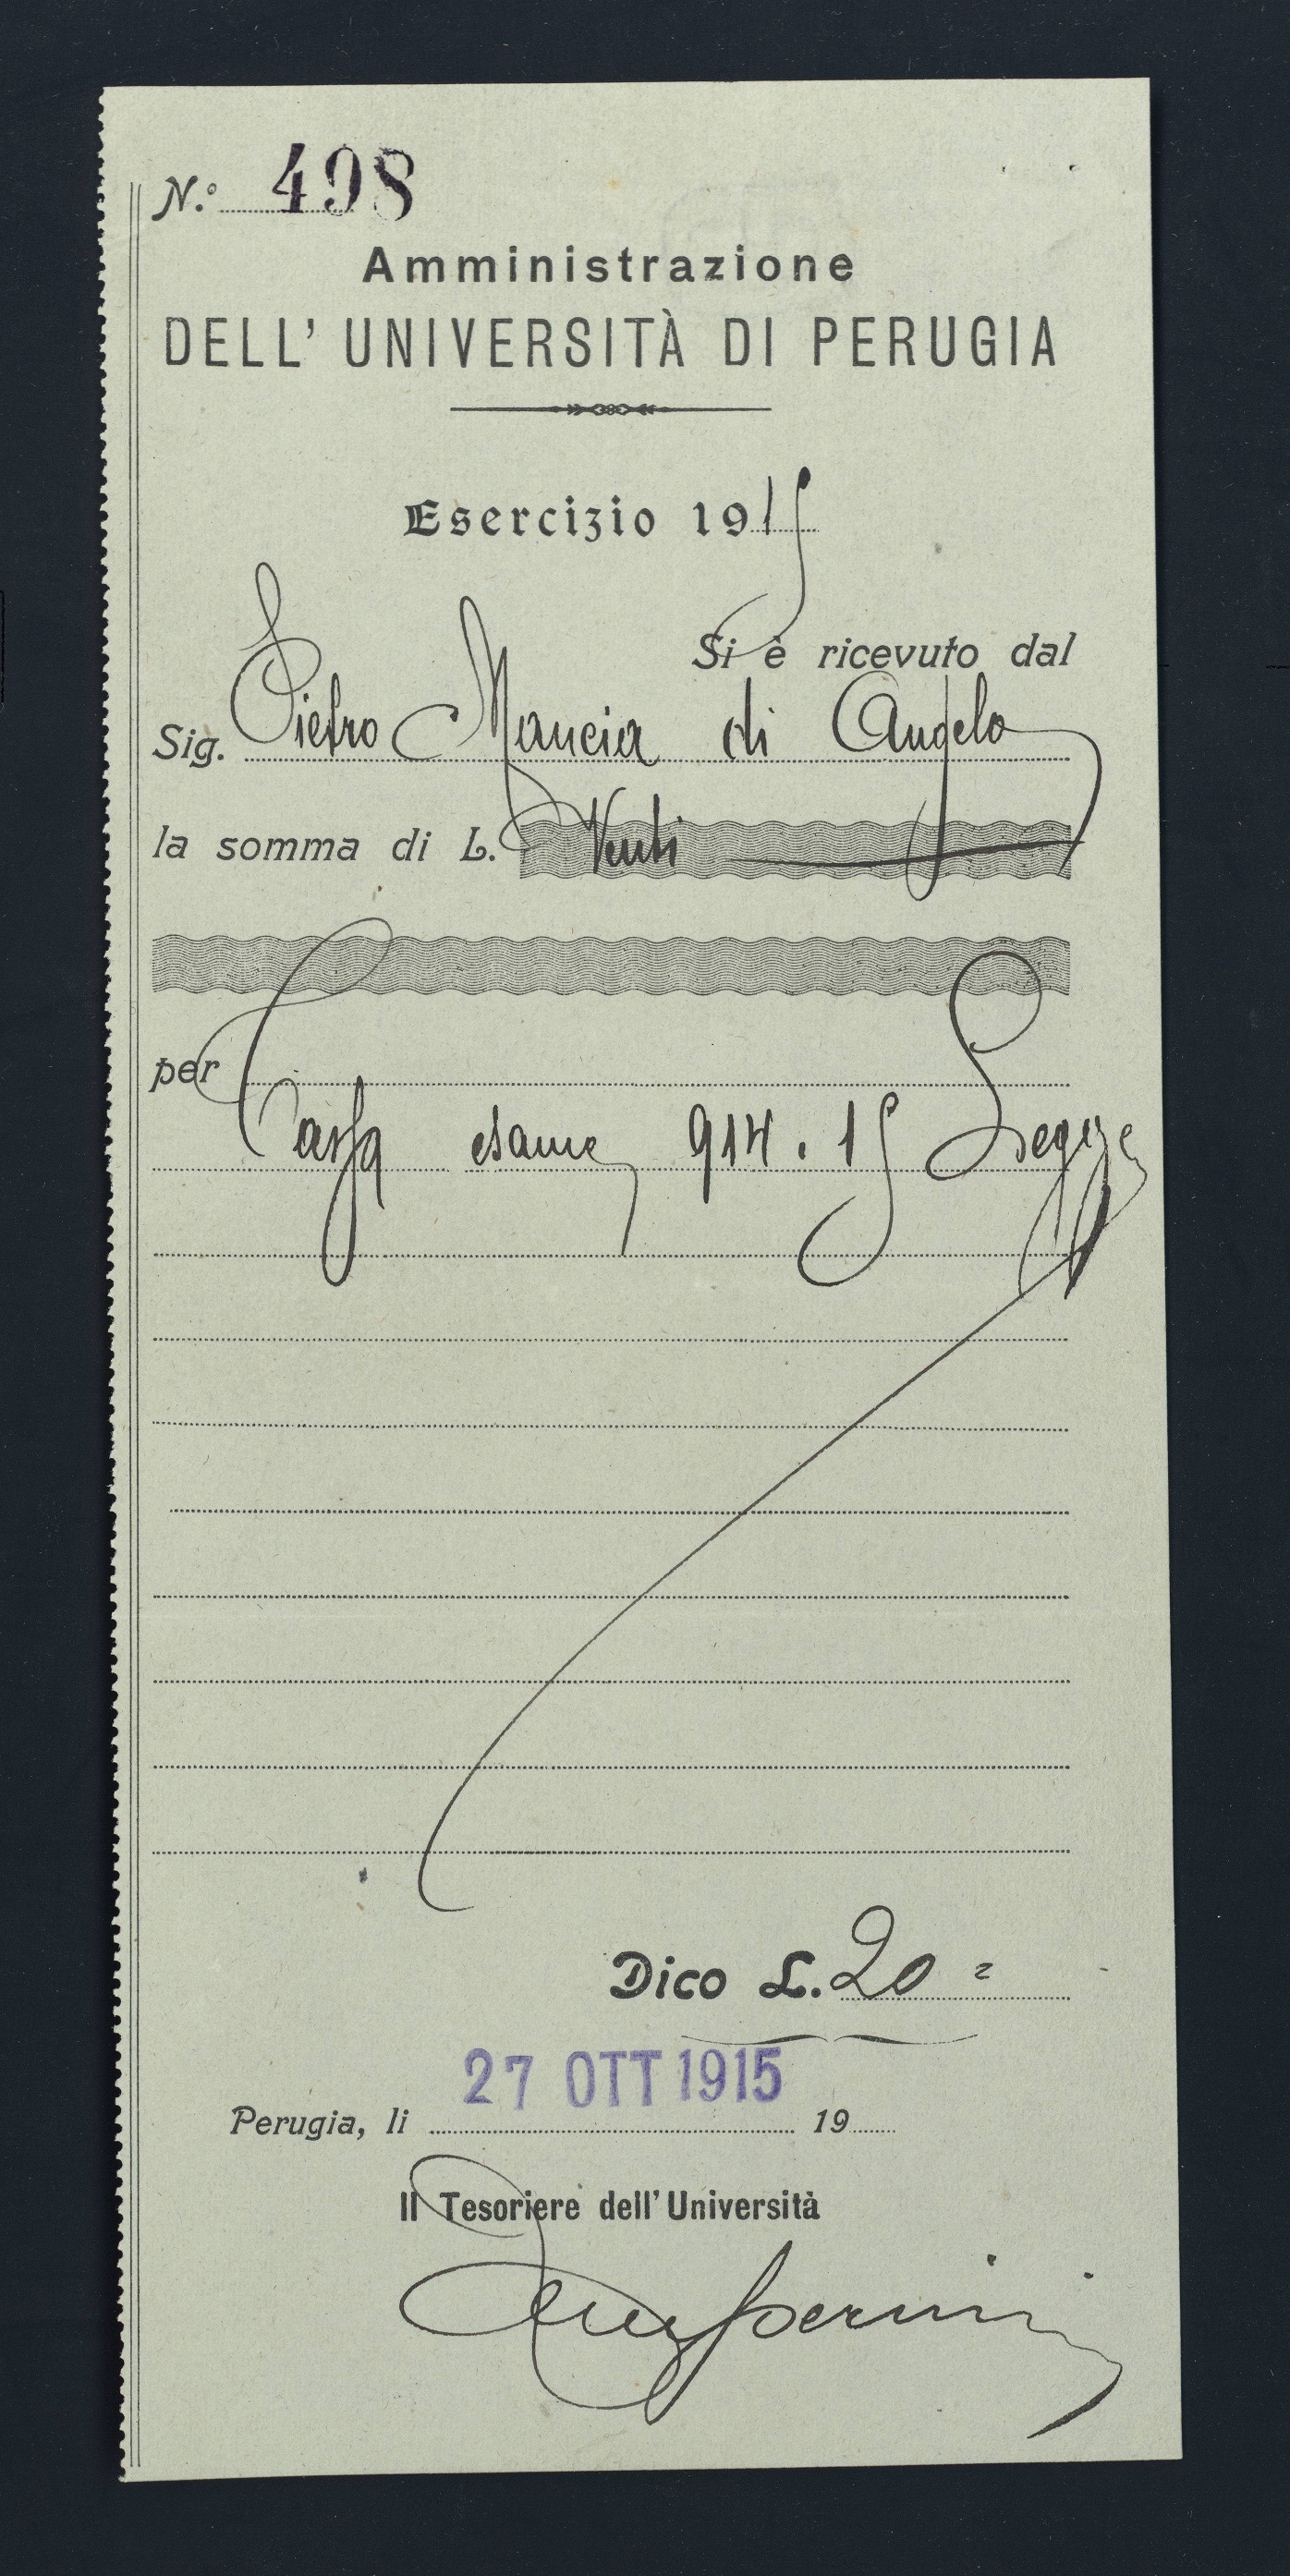 N.º 498
Amministrazione
DELL' UNIVERSITÀ DI PERUGIA
Esercizio 1915
Si è ricevuto dal
Sig. Pietro Mancia di Angelo
la somma di L. Venti
per
Tassa esame 914.15 Legge
Dico L. 20 =
27 OTT 1915
Perugia, li 19
Il Tesoriere dell' Università